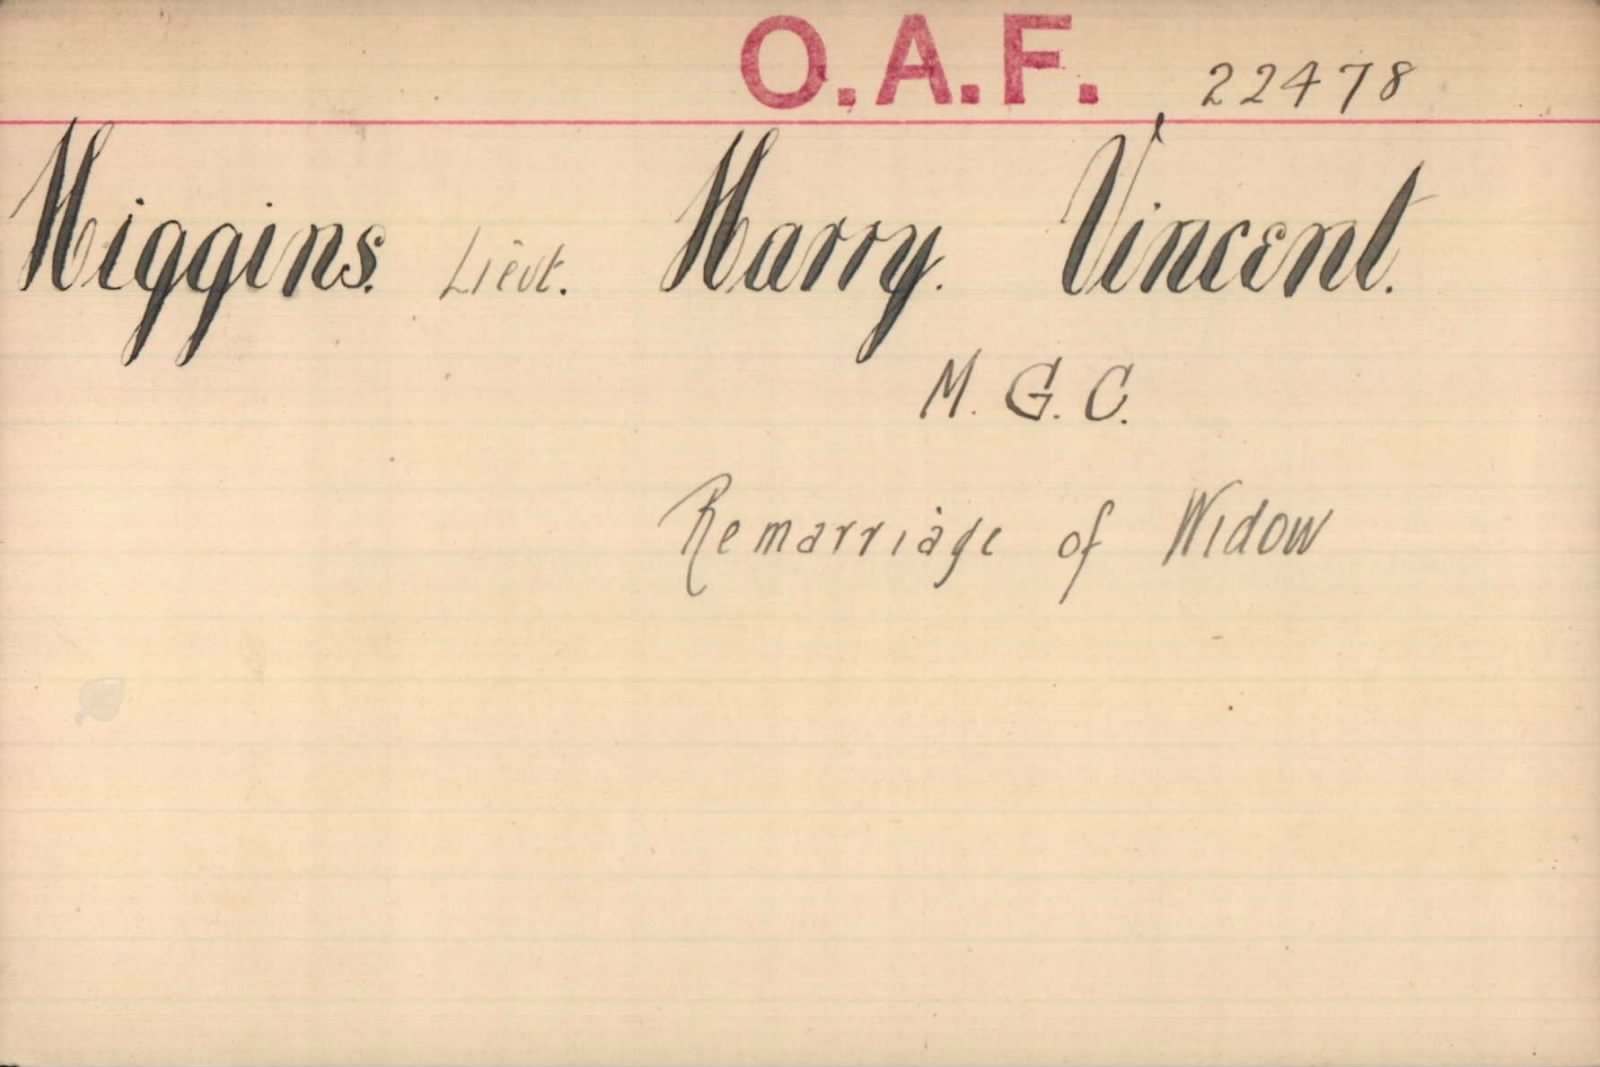 O.A.F. 22478
Higgins. Lieut. Harry. Vincent.
M. G. C.
Remarriage of Widow